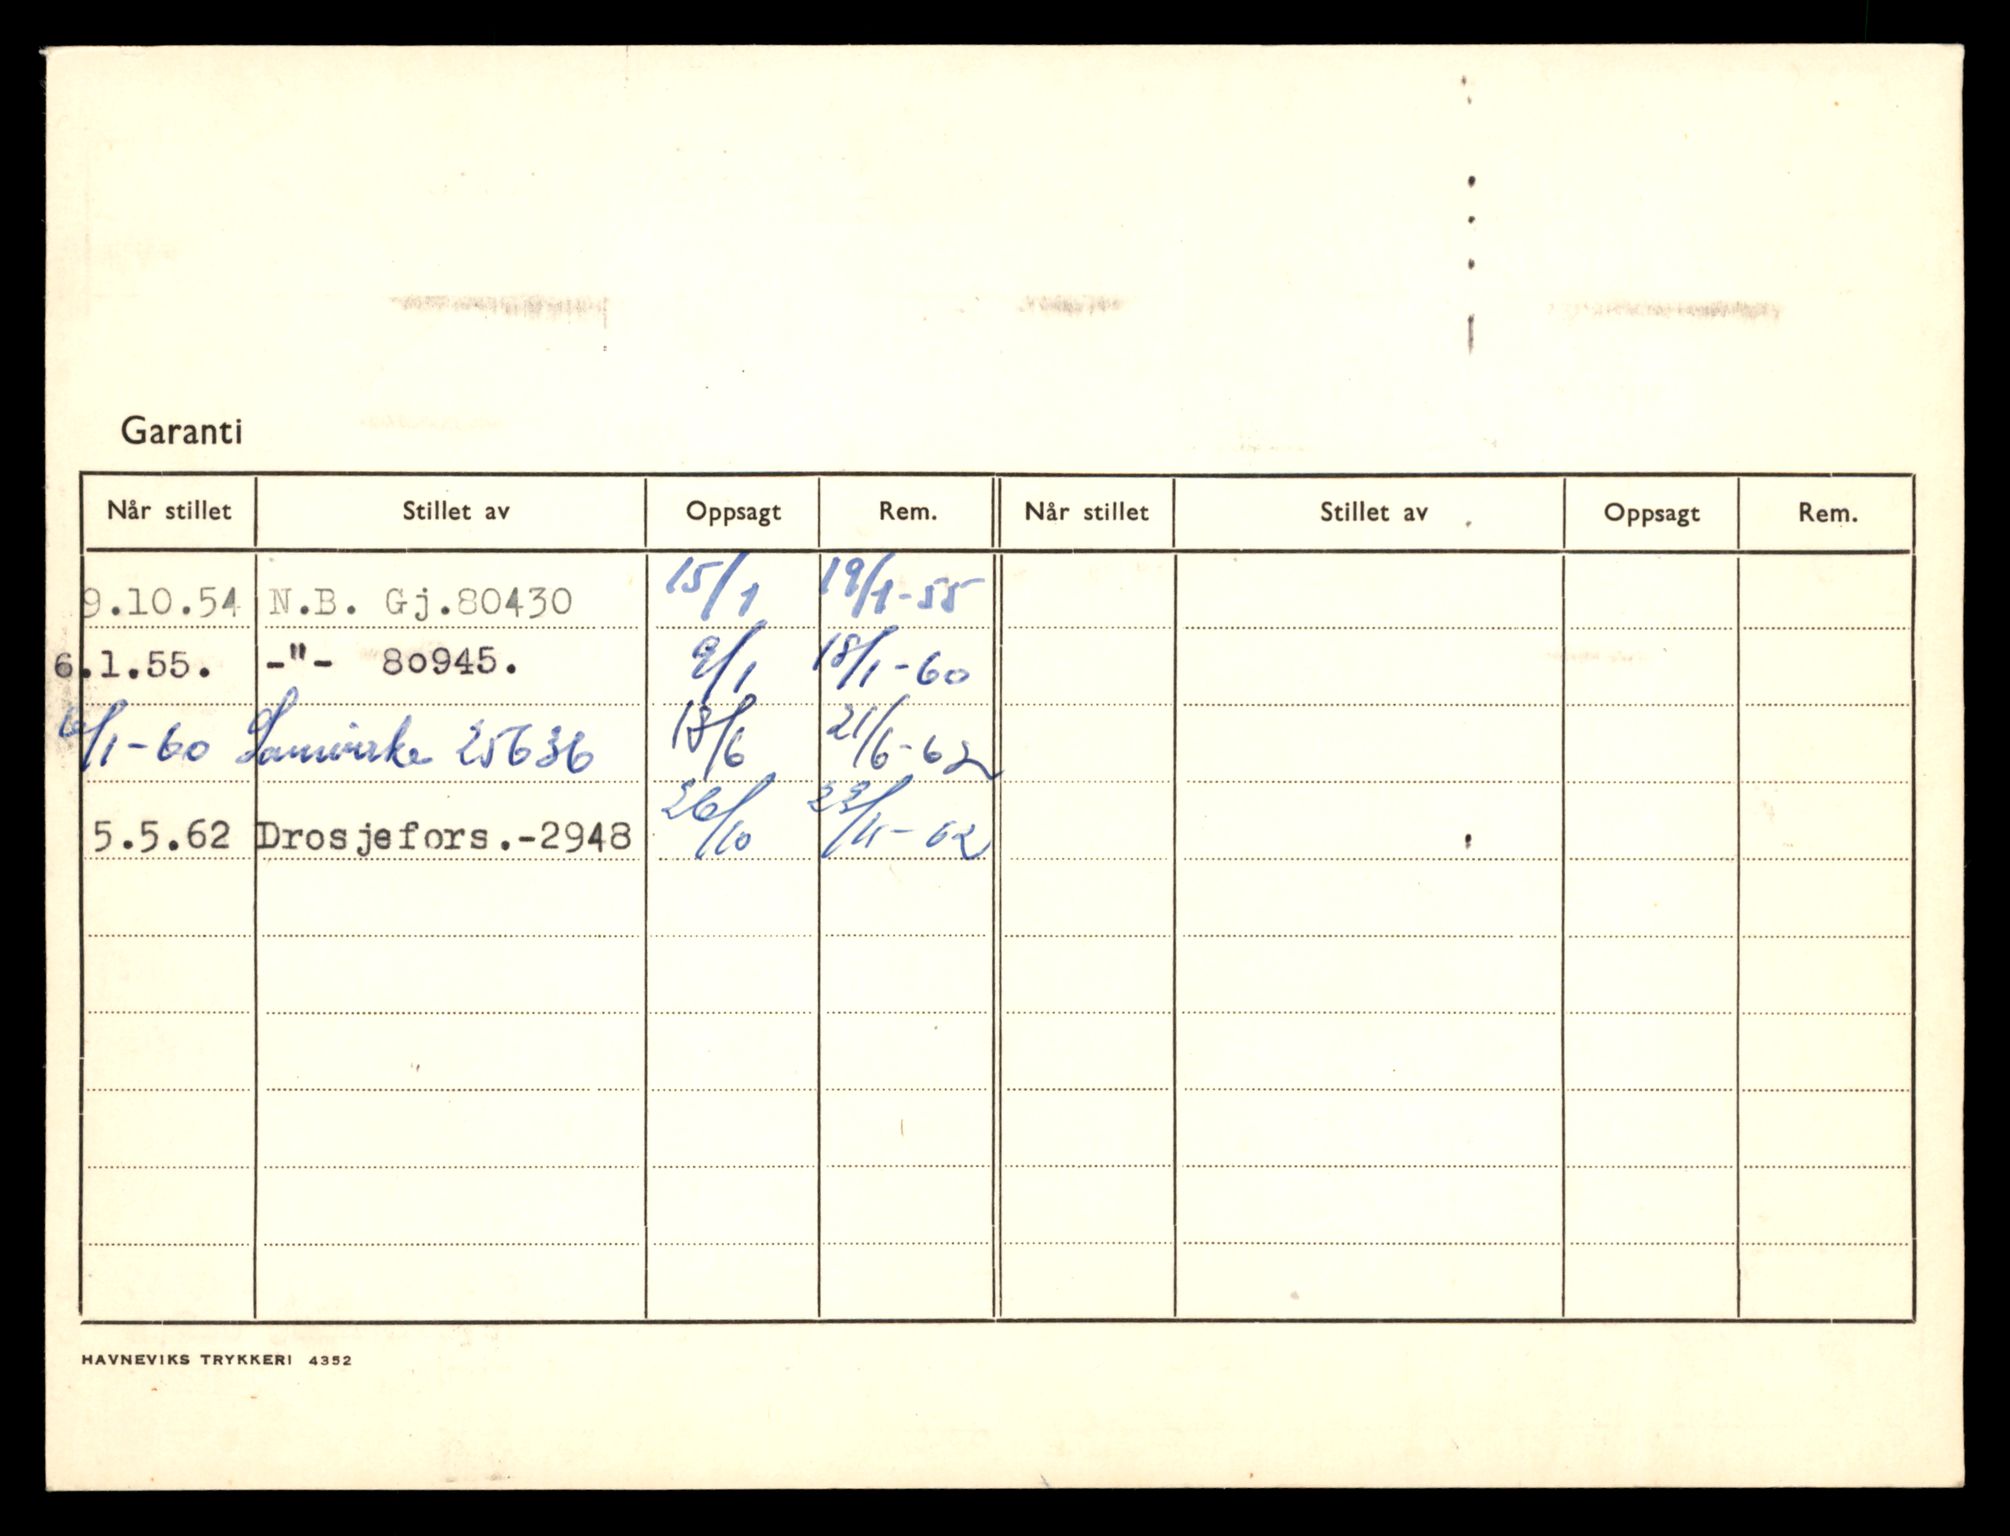 Garanti
Når stillet Stillet av Oppsagt Rem. Når stillet Stillet av Oppsagt Rem.
9.10.54 N.B. Gj.80430 15/1 19/1-55
6.1.55. -"- 80945. 9/1 18/1-60
6/1-60 Samvirke 25636 18/6 21/6-62
5.5.62 Drosjefors.-2948 26/10 23/11-62
HAVNEVIKS TRYKKERI 4352